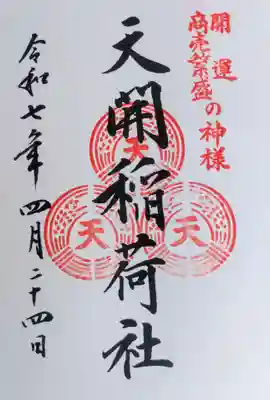 開運
商売繁盛の神様
天開稲荷社
天
天
天
令和七年四月二十四日